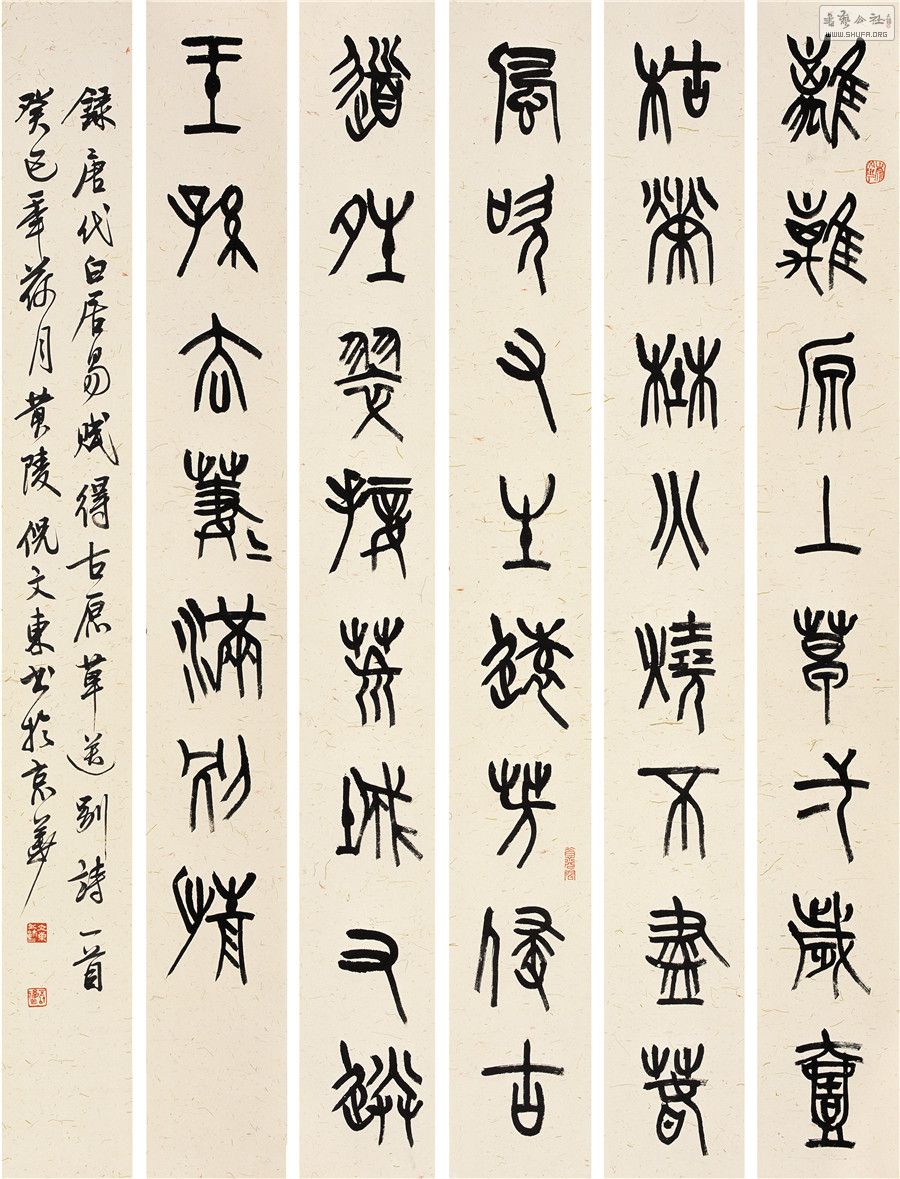 離離原上草弌歲壹
枯榮埜火燒不盡春
風吹又生遠芳侵古
道夝翠接荒城又送
王孫去萋〻滿別情
錄唐代白居易賦得古原草送別詩一首
癸巳年荷月黄陵倪文東书於京華
書藝公社
WWW.SHUFA.ORG